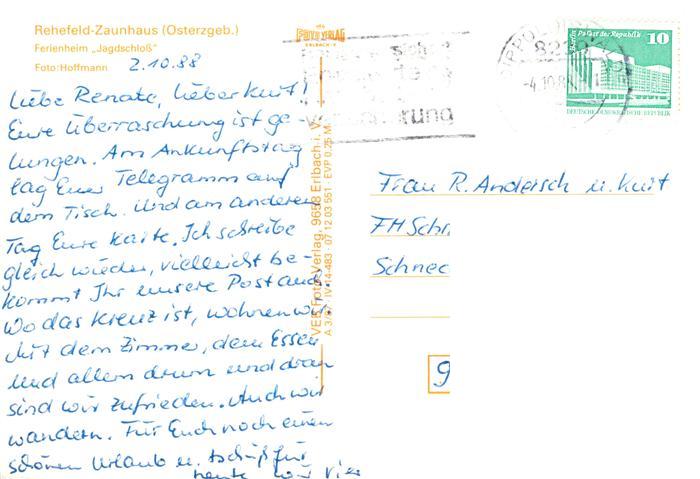 Rehefeld-Zaunhaus (Osterzgeb.)
Ferienheim „Jagdschloß"
Foto: Hoffmann
2.10.88
Liebe Renate, lieber Kurt!
Eure Überraschung ist ge-
lungen. Am Ankunftstag
lag Euer Telegramm auf
dem Tisch. Und am anderen
Tag Eure Karte. Ich schreibe
gleich wieder, vielleicht be-
kommt Ihr unsere Post auch.
Wo das Kreuz ist, wohnen wir.
Mit dem Zimmer, dem Essen
und allem drum und dran
sind wir zufrieden. Auch wir
wandern. Für Euch noch einen
schönen Urlaub u. tschüß für
heute
VEB Foto-Verlag, 9658 Erlbach i. V.
A 3/87 IV-14-483 · 07 12 03 551 · EVP 0,25 M
FOTO VERLAG
ERLBACH·V.
4.10.88
Berlin, Palast der Republik
10
DEUTSCHE DEMOKRATISCHE REPUBLIK
Frau R. Andersch u. Kurt
FH Schr
Schnec
9